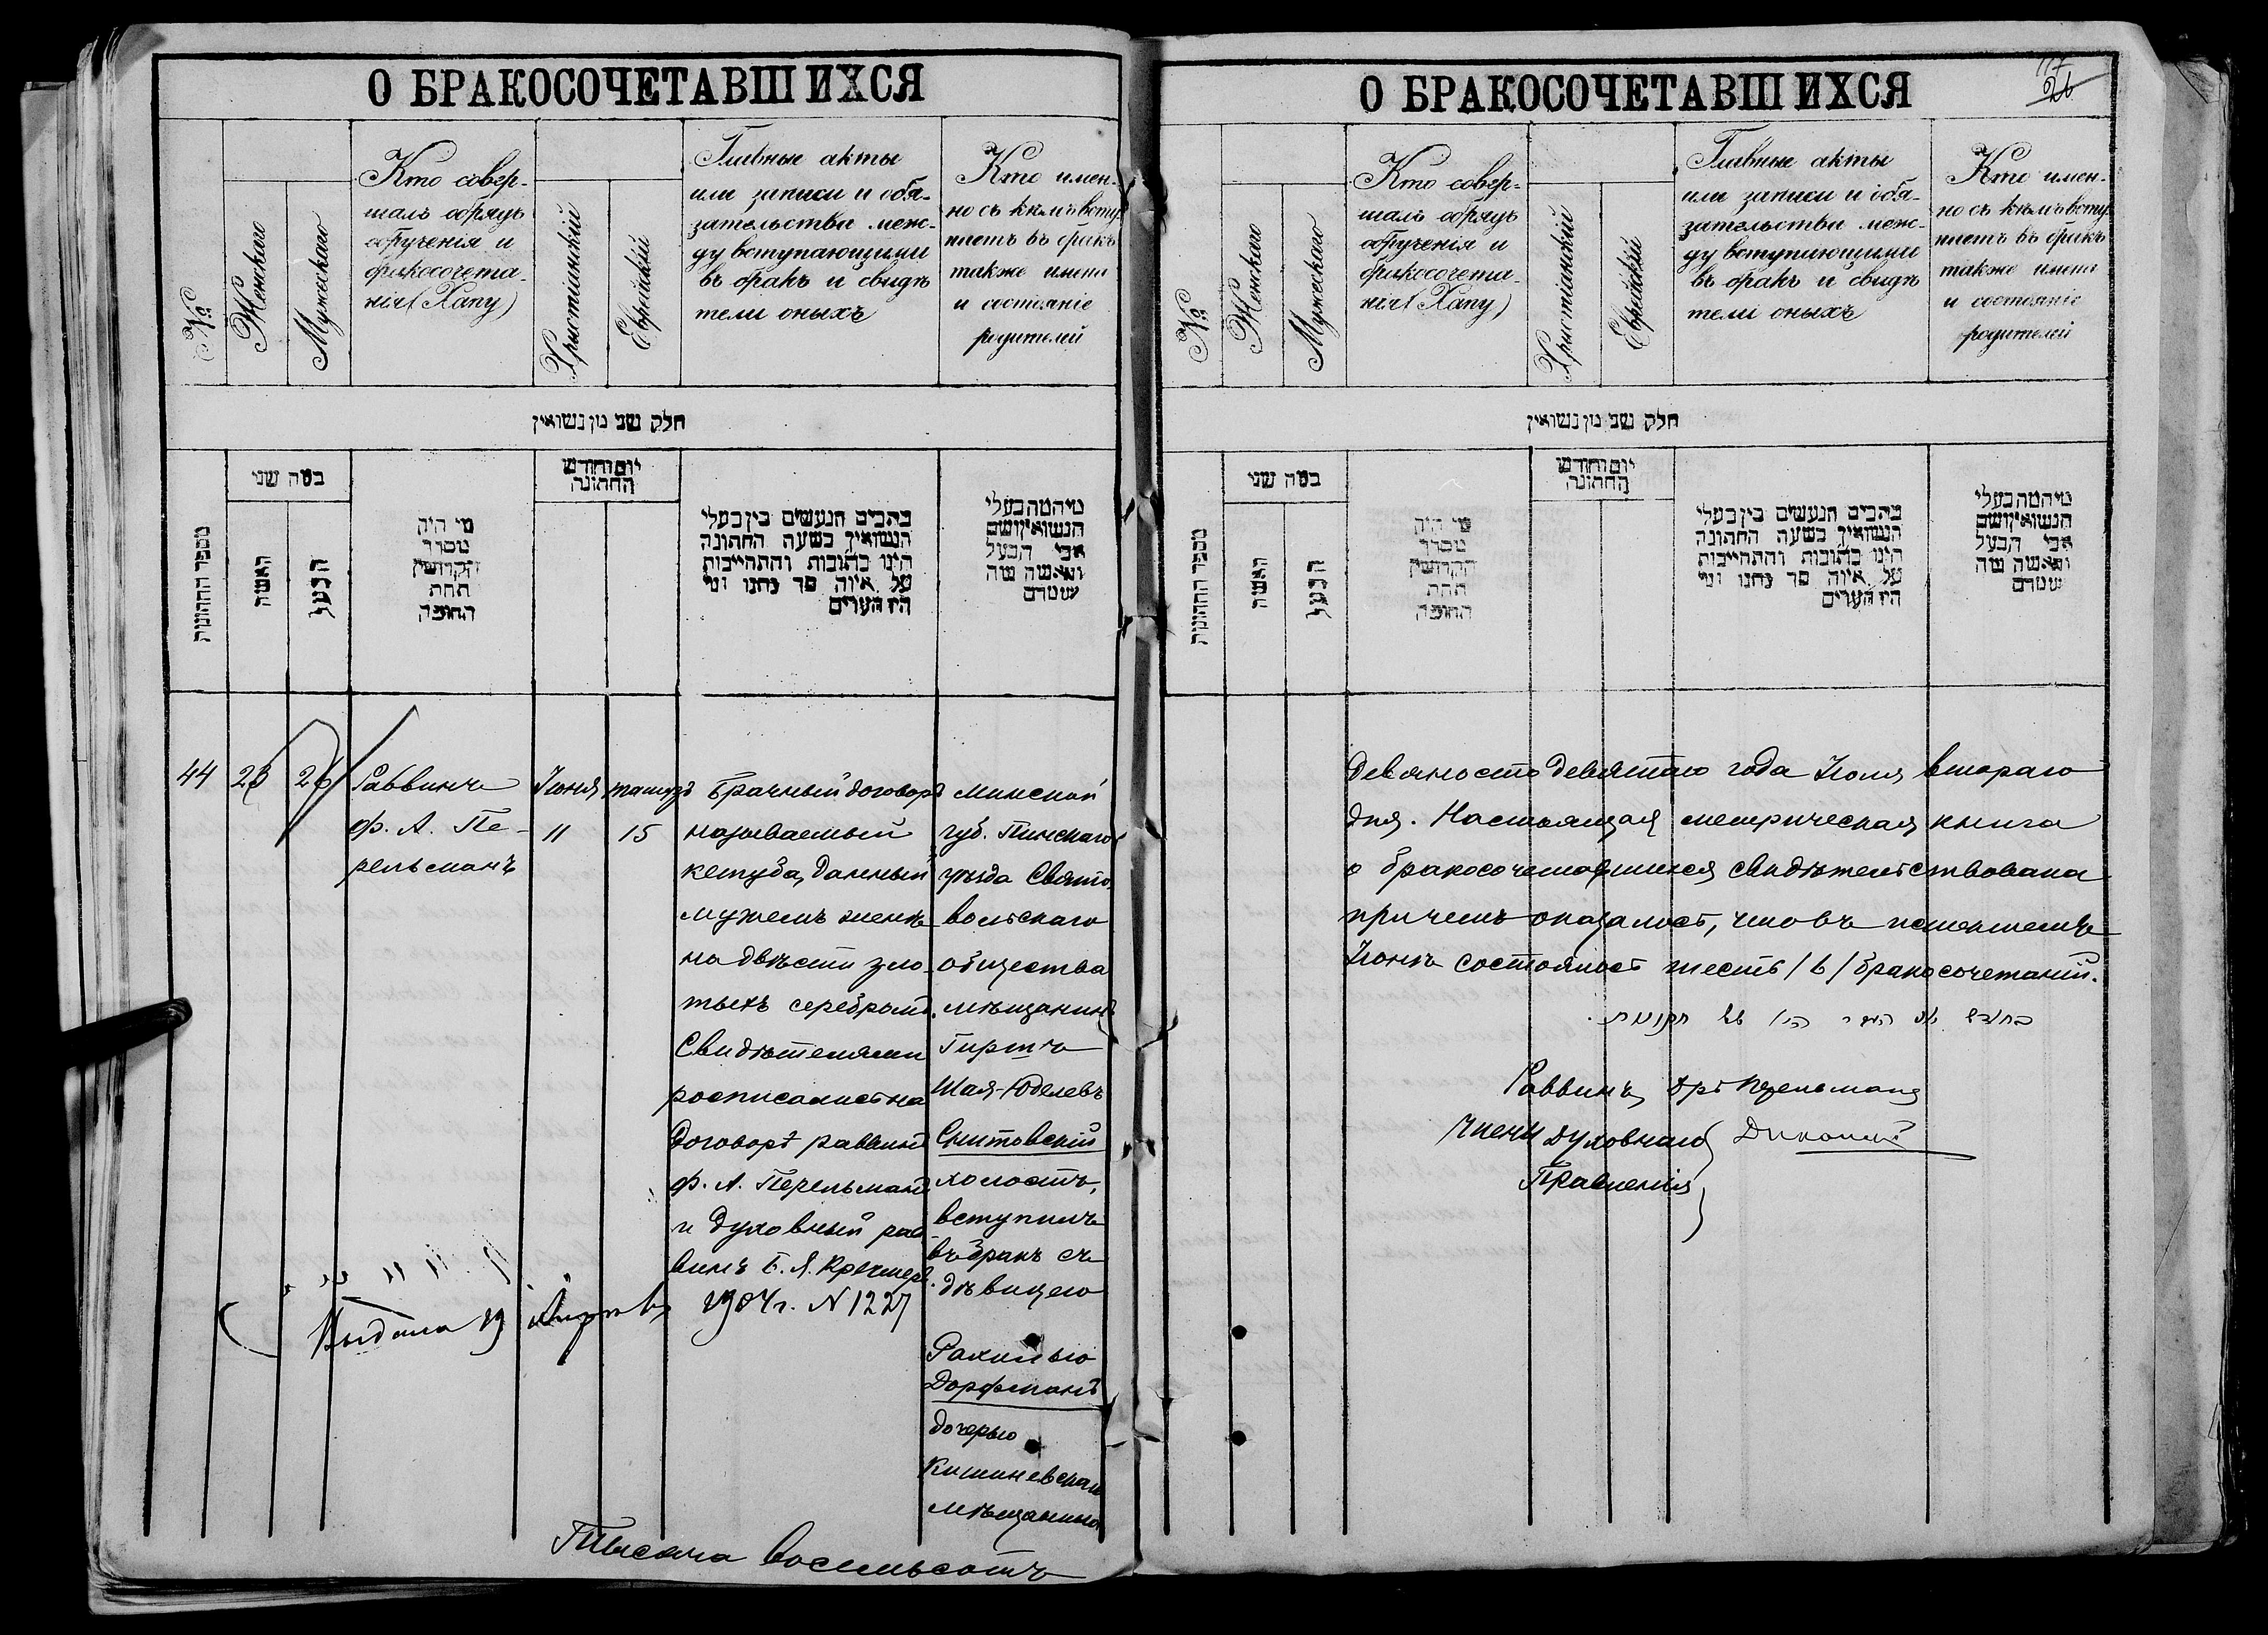 О БРАКОСОЧЕТАВШИХСЯ
№
Женскаго
Мужескаго
Кто совер-
шалъ обрядъ
обрученія и
бракосочета-
нія (Хапу)
Христіанскій
Еврейскій
Главные акты
или записи и обя-
зательства меж-
ду вступающими
въ бракъ и свидѣ
тели оныхъ
Кто имен-
но съ кѣмъ всту
паетъ въ бракъ
также имена
и состояніе
родителей
חלק שני מן נשואין
מספר החתונות
במה שני
האשה
הבעל
מי היה
מסדר
הקדושין
תחת
החופה
יום וחודש
החתונה
הנעשים בין בעלי
הנשואין בשעה החתונה
היינו כתובות והתחייבות
על איזה סך נתנו ומי
היו העדים
הנשואין ושם
אבי הבעל
והאשה
44
23
26
Раввинъ
ф. А. Пе-
рельманъ
Іюня
11
тамузъ
15
Брачный договоръ
называемый
кетуба, данный
мужемъ женѣ
на двѣсти зло-
тыхъ серебромъ.
Свидѣтелями
росписались на
договорѣ раввинъ
ф. А. Перельманъ
и духовный рав
винъ Б. Я.
Минской
губ. Пинскаго
уѣзда Свято
вольскаго
общества
мѣщанинъ
Гиршъ
Шая-Юделевъ
Снитовскій
холостъ,
вступилъ
въ бракъ съ
дѣвицею
Рахилью
Дорфманъ
дочерью
Кишиневскаго
мѣщанина
Выдана 19 1904 г. N 1227
Тысяча восемьсотъ
О БРАКОСОЧЕТАВШИХСЯ
117
26
№
Женскаго
Мужескаго
Кто совер-
шалъ обрядъ
обрученія и
бракосочета-
нія (Хапу)
Христіанскій
Еврейскій
Главные акты
или записи и обя-
зательства меж-
ду вступающими
въ бракъ и свидѣ
тели оныхъ
Кто имен-
но съ кѣмъ всту
паетъ въ бракъ
также имена
и состояніе
родителей
חלק שני מן נשואין
מספר החתונות
במה שני
האשה
הבעל
מי היה
מסדר
הקדושין
תחת
החופה
יום וחודש
החתונה
הנעשים בין בעלי
הנשואין בשעה החתונה
היינו כתובות והתחייבות
על איזה סך נתנו ומי
היו העדים
הנשואין ושם
אבי הבעל
והאשה
девяносто девятаго года Іюля втораго
дня. Настоящая метрическая книга
о бракосочетавшихся свидѣтельствована
причемъ оказалось, что въ истекшемъ
Іюнѣ состоялось шесть /6/ бракосочетаній.
Раввинъ Др. Перельманъ
Члены духовнаго
Правленія